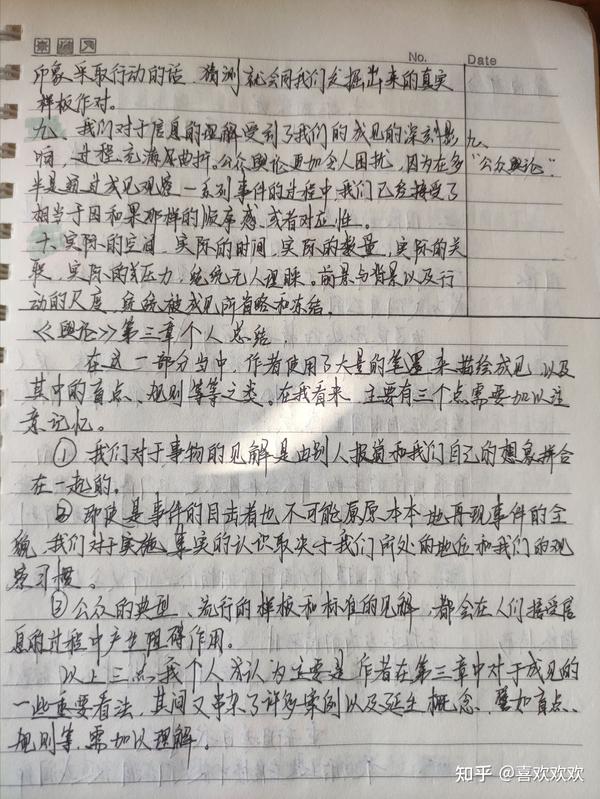 No. Date
印象采取行动的话，猜测就会同我们发掘出来的真实
样板作对。
九、我们对于信息的理解受到了我们的成见的深刻影
响，过程充满屈曲折。公众舆论更加令人困扰，因为在多
半是通过成见观察一系列事件的过程中，我们已经接受了
相当于因和果那样的顺序感、或者对应性。
九、
“公众舆论”
十、实际的空间，实际的时间，实际的数量，实际的关
联，实际的压力，统统无人理睬。前景与背景以及行
动的尺度，统统被成见所省略和冻结。
《舆论》第三章个人总结。
在这一部分当中，作者使用了大量的笔墨来描绘成见，以及
其中的盲点、规则等等之类。在我看来，主要有三个点需要加以注
意、记忆。
① 我们对于事物的见解是由别人报道和我们自己的想象拼合
在一起的。
② 即使是事件的目击者也不可能原原本本地再现事件的全
貌，我们对于事实的认识取决于我们所处的地位和我们的观
察习惯。
③ 公众的典型、流行的样板和标准的见解，都会在人们接受信
息的过程中产生阻碍作用。
以上三点，我个人认为主要是作者在第三章中对于成见的
一些重要看法，其间又串杂了许多案例以及延生概念，譬如盲点、
规则等，需加以理解。
知乎 @喜欢欢欢